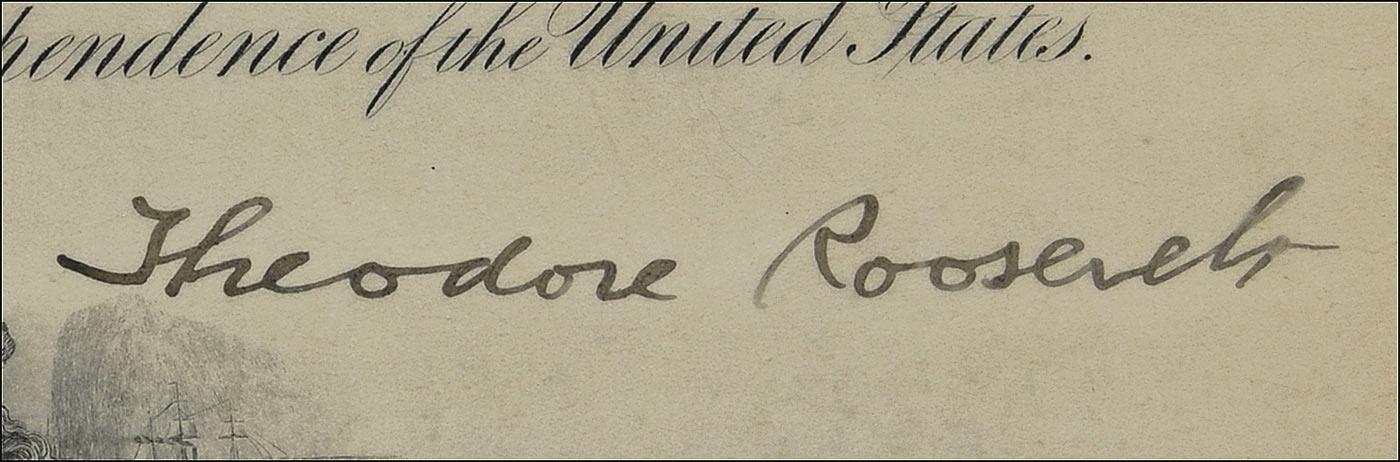 pendence of the United States.
Theodore Roosevelt